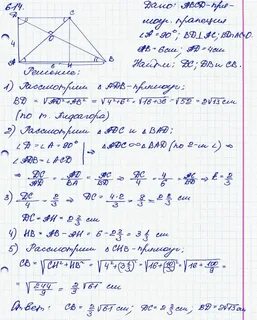 614.
D C
4
O
A H B
Дано: ABCD-пря-
моуг. трапеция
∠A=90°; BD⊥AC; BD∩AC=O
AB=6см, AD=4см
Найти: DC; DB и CB.
Решение:
1) Рассмотрим △ADB-прямоуг.:
BD = √AD²+AB² = √4²+6² = √16+36 = √52 = 2√13 см
(по т. Пифагора)
2) Рассмотрим △ADC и △BAD:
∠D=∠A=90° | ⇒ △ADC∞△BAD (по 2-м ∠) ⇒
∠ABD=∠ACD
⇒ DC/AD = AD/BA = AC/BD ⇒ DC/4 = 4/6 = AC/BD ⇒ k=2/3
3) DC/4 = 2/3 ⇒ DC = 4·2/3 = 8/3 = 2 2/3 см
DC=AH=2 2/3 см
4) HB=AB-AH=6-2 2/3=3 1/3 см
5) Рассмотрим △CHB-прямоуг.:
CB = √CH²+HB² = √4²+(3 1/3)² = √16+(10/3)² = √16+100/9 =
= √244/9 = 2/3 √61 см
Ответ: CB=2/3 √61 см; DC=2 2/3 см; BD=2√13 см